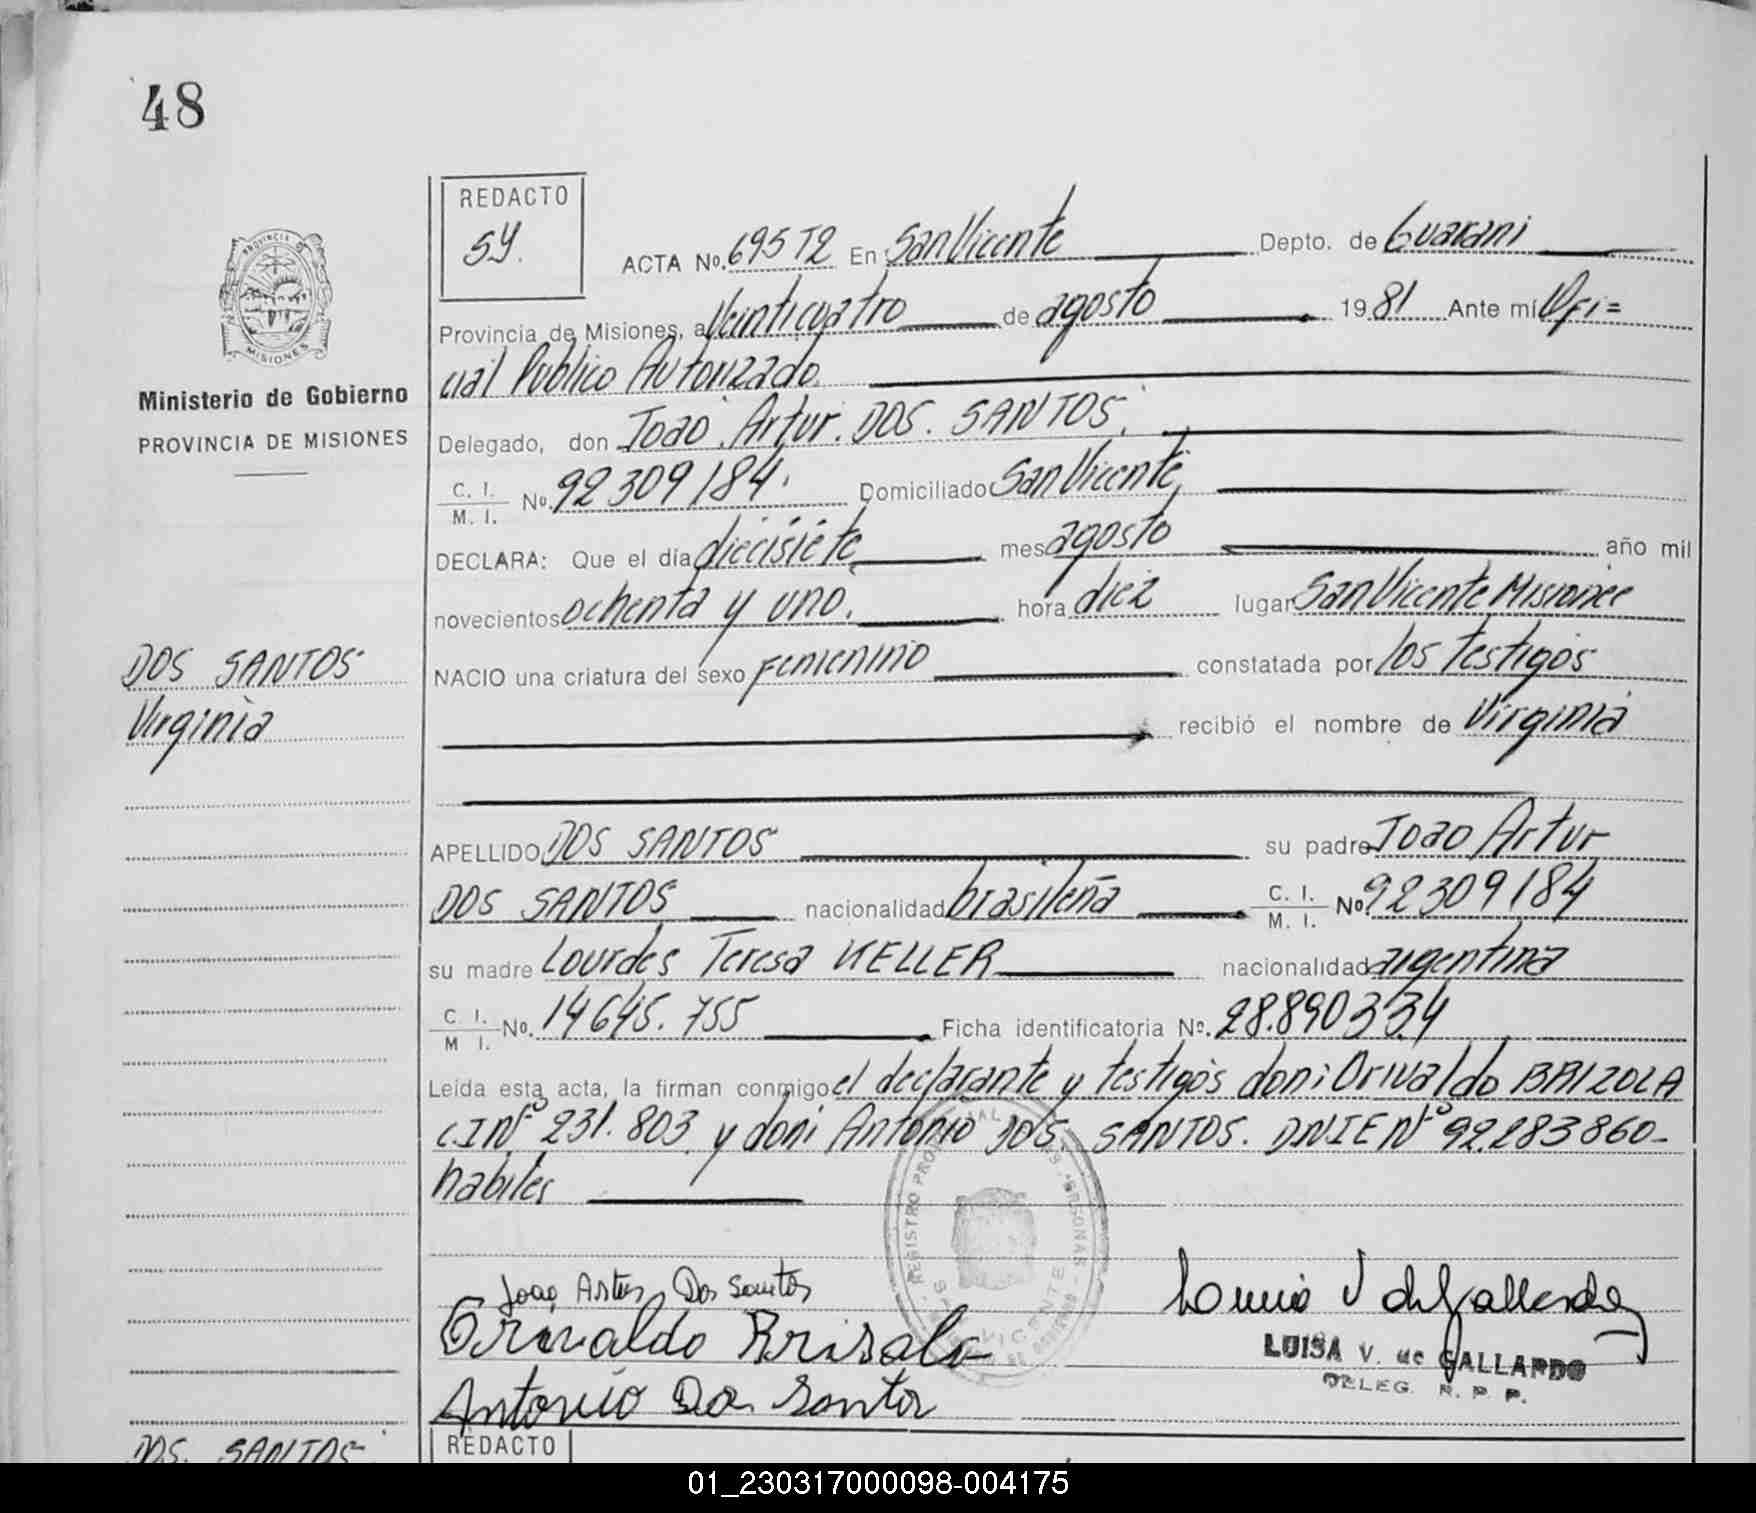 48
REDACTO
SY.
ACTA No. 695 T2 En San Vicente Depto. de Guarani
Provincia de Misiones, a Veinticuatro de agosto 1981 Ante mí Ofi=
cial Publico Autorizado.
Delegado, don Joao Artur. DOS. SANTOS.
C. I.
M. I. No. 92 309 184. Domiciliado San Vicente,
DECLARA: Que el día diecisiete mes agosto año mil
novecientos ochenta y uno. hora diez lugar San Vicente Misiones
NACIO una criatura del sexo femenino constatada por los testigos
recibió el nombre de Virginia
APELLIDO DOS SANTOS su padre Joao Artur
DOS SANTOS nacionalidad brasileña C. I.
M. I. No. 92309184
su madre Lourdes Teresa KELLER nacionalidad argentina
C. I.
M I. No. 14645.755 Ficha identificatoria Nº. 28.890334
Leída esta acta, la firman conmigo el declarante y testigos don: Orivaldo BRIZOLA
C.I Nº 231.803 y don: Antonio DOS SANTOS. DNIE Nº 92.283860-
habiles
PROVINCIA D
MISIONES
Ministerio de Gobierno
PROVINCIA DE MISIONES
DOS SANTOS
Virginia
Joao Artur Dos Santos
Orivaldo Brisola
Antonio Dos Santos
LUISA V. de GALLARDO
DELEG. R. P. P.
DOS. SANTOS.
REDACTO
01_230317000098-004175